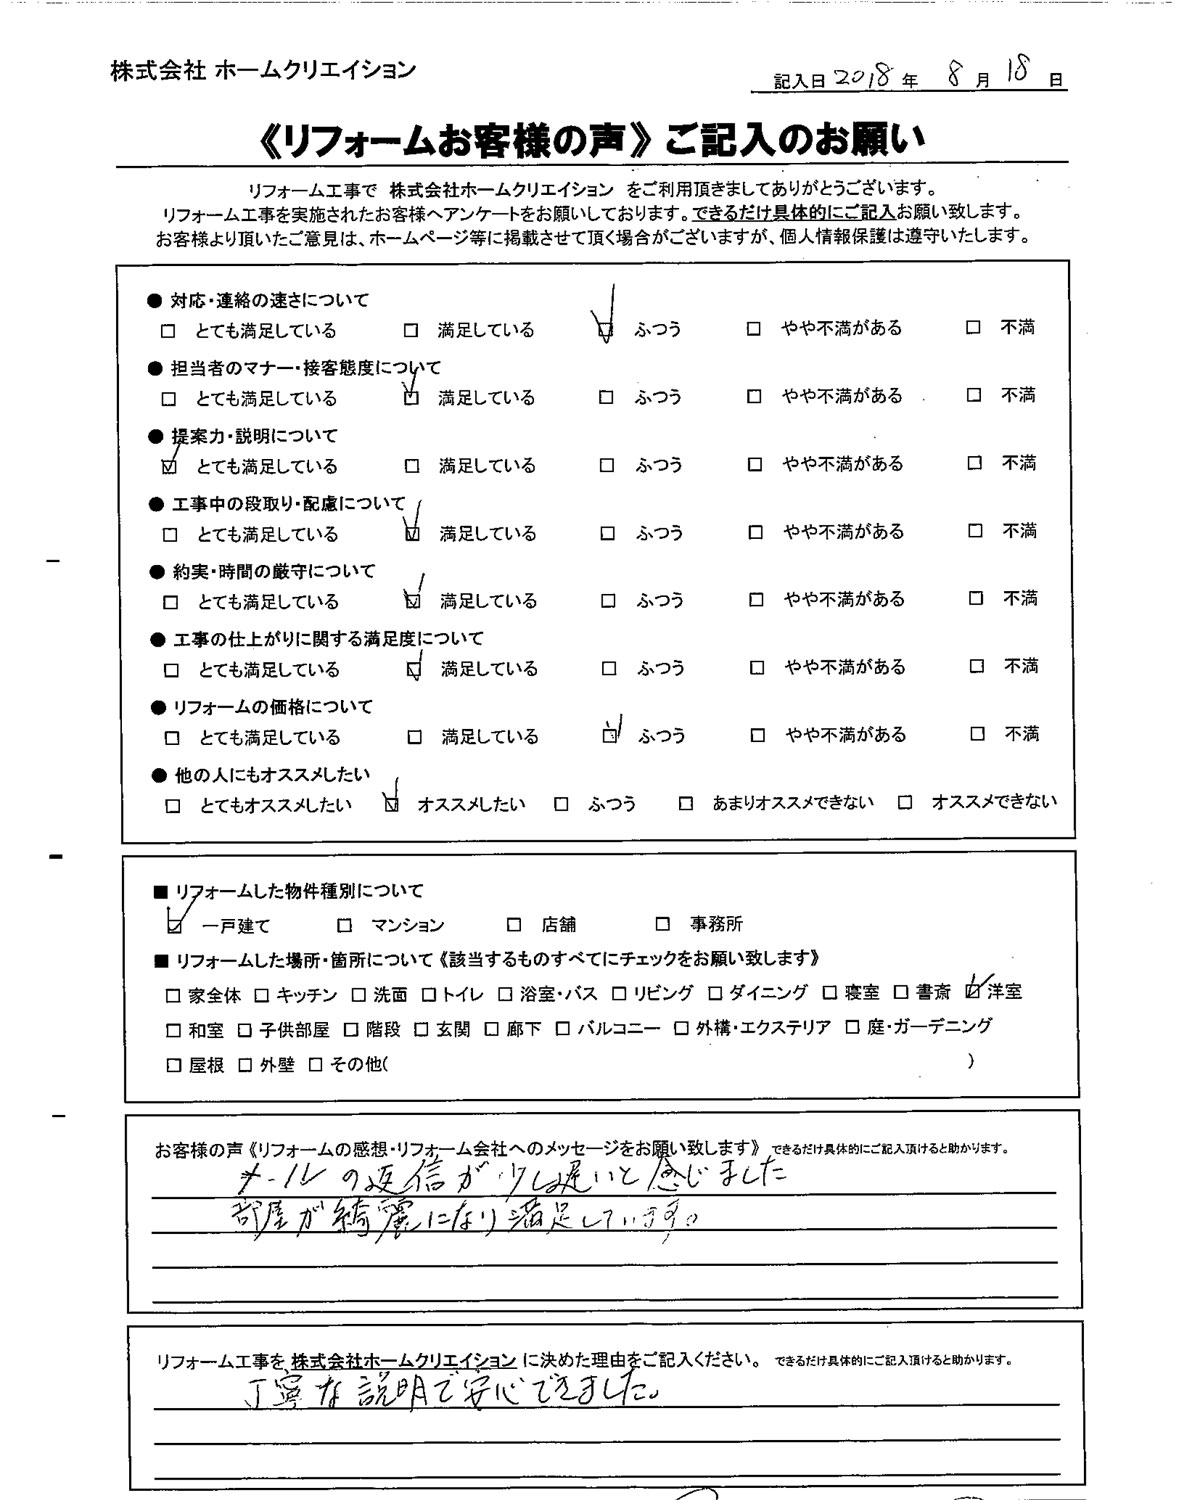 株式会社 ホームクリエイション
記入日 2018 年 8 月 18 日
《リフォームお客様の声》ご記入のお願い
リフォーム工事で 株式会社ホームクリエイション をご利用頂きましてありがとうございます。
リフォーム工事を実施されたお客様へアンケートをお願いしております。できるだけ具体的にご記入お願い致します。
お客様より頂いたご意見は、ホームページ等に掲載させて頂く場合がございますが、個人情報保護は遵守いたします。
● 対応・連絡の速さについて
□ とても満足している □ 満足している ☑ ふつう □ やや不満がある □ 不満
● 担当者のマナー・接客態度について
□ とても満足している ☑ 満足している □ ふつう □ やや不満がある □ 不満
● 提案力・説明について
☑ とても満足している □ 満足している □ ふつう □ やや不満がある □ 不満
● 工事中の段取り・配慮について
□ とても満足している ☑ 満足している □ ふつう □ やや不満がある □ 不満
● 約実・時間の厳守について
□ とても満足している ☑ 満足している □ ふつう □ やや不満がある □ 不満
● 工事の仕上がりに関する満足度について
□ とても満足している ☑ 満足している □ ふつう □ やや不満がある □ 不満
● リフォームの価格について
□ とても満足している □ 満足している ☑ ふつう □ やや不満がある □ 不満
● 他の人にもオススメしたい
□ とてもオススメしたい ☑ オススメしたい □ ふつう □ あまりオススメできない □ オススメできない
■ リフォームした物件種別について
☑ 一戸建て □ マンション □ 店舗 □ 事務所
■ リフォームした場所・箇所について《該当するものすべてにチェックをお願い致します》
□ 家全体 □ キッチン □ 洗面 □ トイレ □ 浴室・バス □ リビング □ ダイニング □ 寝室 □ 書斎 ☑ 洋室
□ 和室 □ 子供部屋 □ 階段 □ 玄関 □ 廊下 □ バルコニー □ 外構・エクステリア □ 庭・ガーデニング
□ 屋根 □ 外壁 □ その他( )
お客様の声《リフォームの感想・リフォーム会社へのメッセージをお願い致します》 できるだけ具体的にご記入頂けると助かります。
メールの返信が少し遅いと感じました
部屋が綺麗になり満足しています。
リフォーム工事を 株式会社ホームクリエイション に決めた理由をご記入ください。 できるだけ具体的にご記入頂けると助かります。
丁寧な説明で安心できました。